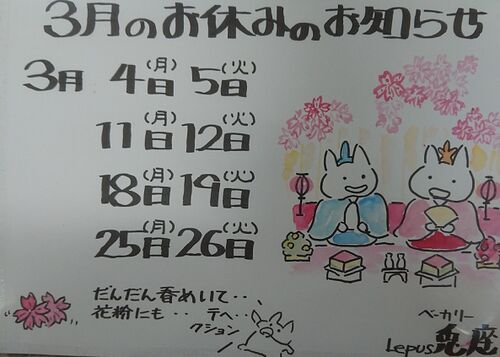 3月のお休みのお知らせ
3月 4日(月) 5日(火)
11日(月) 12日(火)
18日(月) 19日(火)
25日(月) 26日(火)
だんだん春めいて・・、
花粉にも・・ テヘ・・
クション
ベーカリー
Lepus兎座